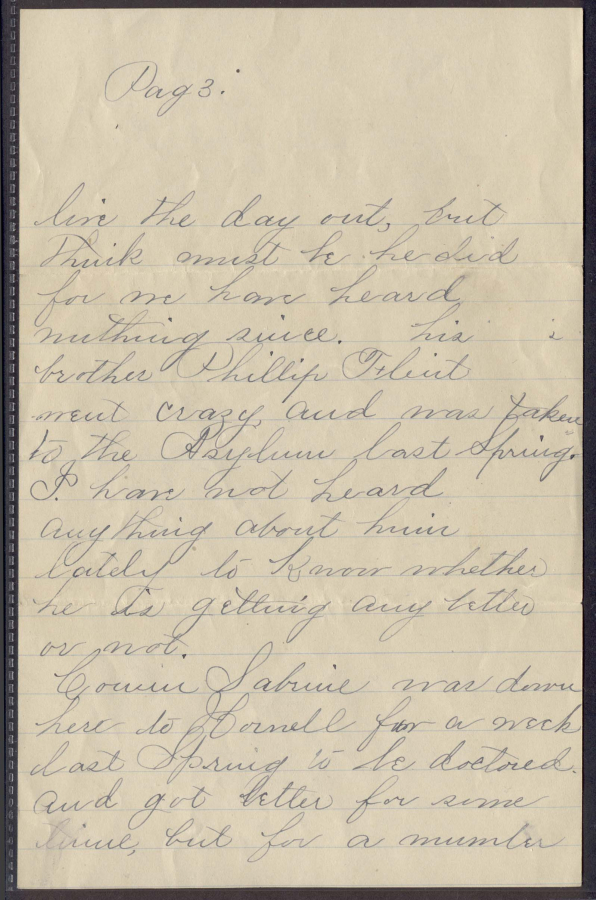 Pag 3.
live the day out, but
think must be he did
for we have heard
nuthing since. his
brother Phillip Flint
went crazy, and was taken
to the Asylum last Spring.
I have not heard
anything about him
lately to know whether
he is getting any better
or not.
Cousin Sabrine was down
here to Hornell for a week
last Spring to be doctored.
and got better for some
time, but for a number